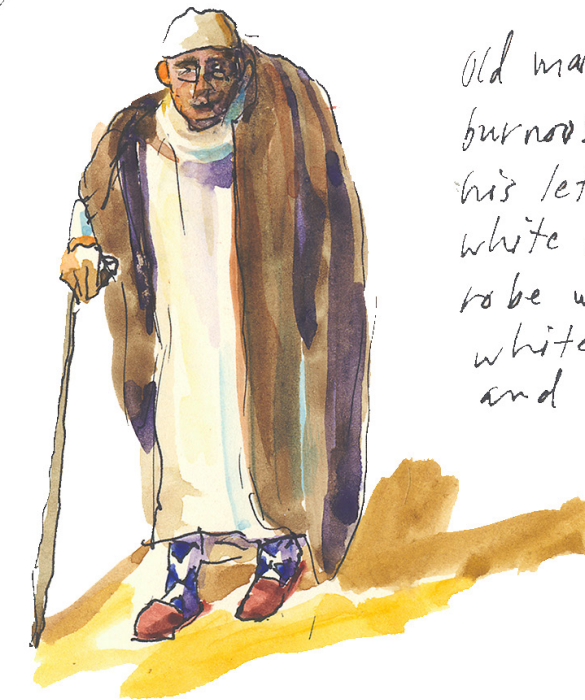 Old ma
burnoo
his le
white
robe w
white
and